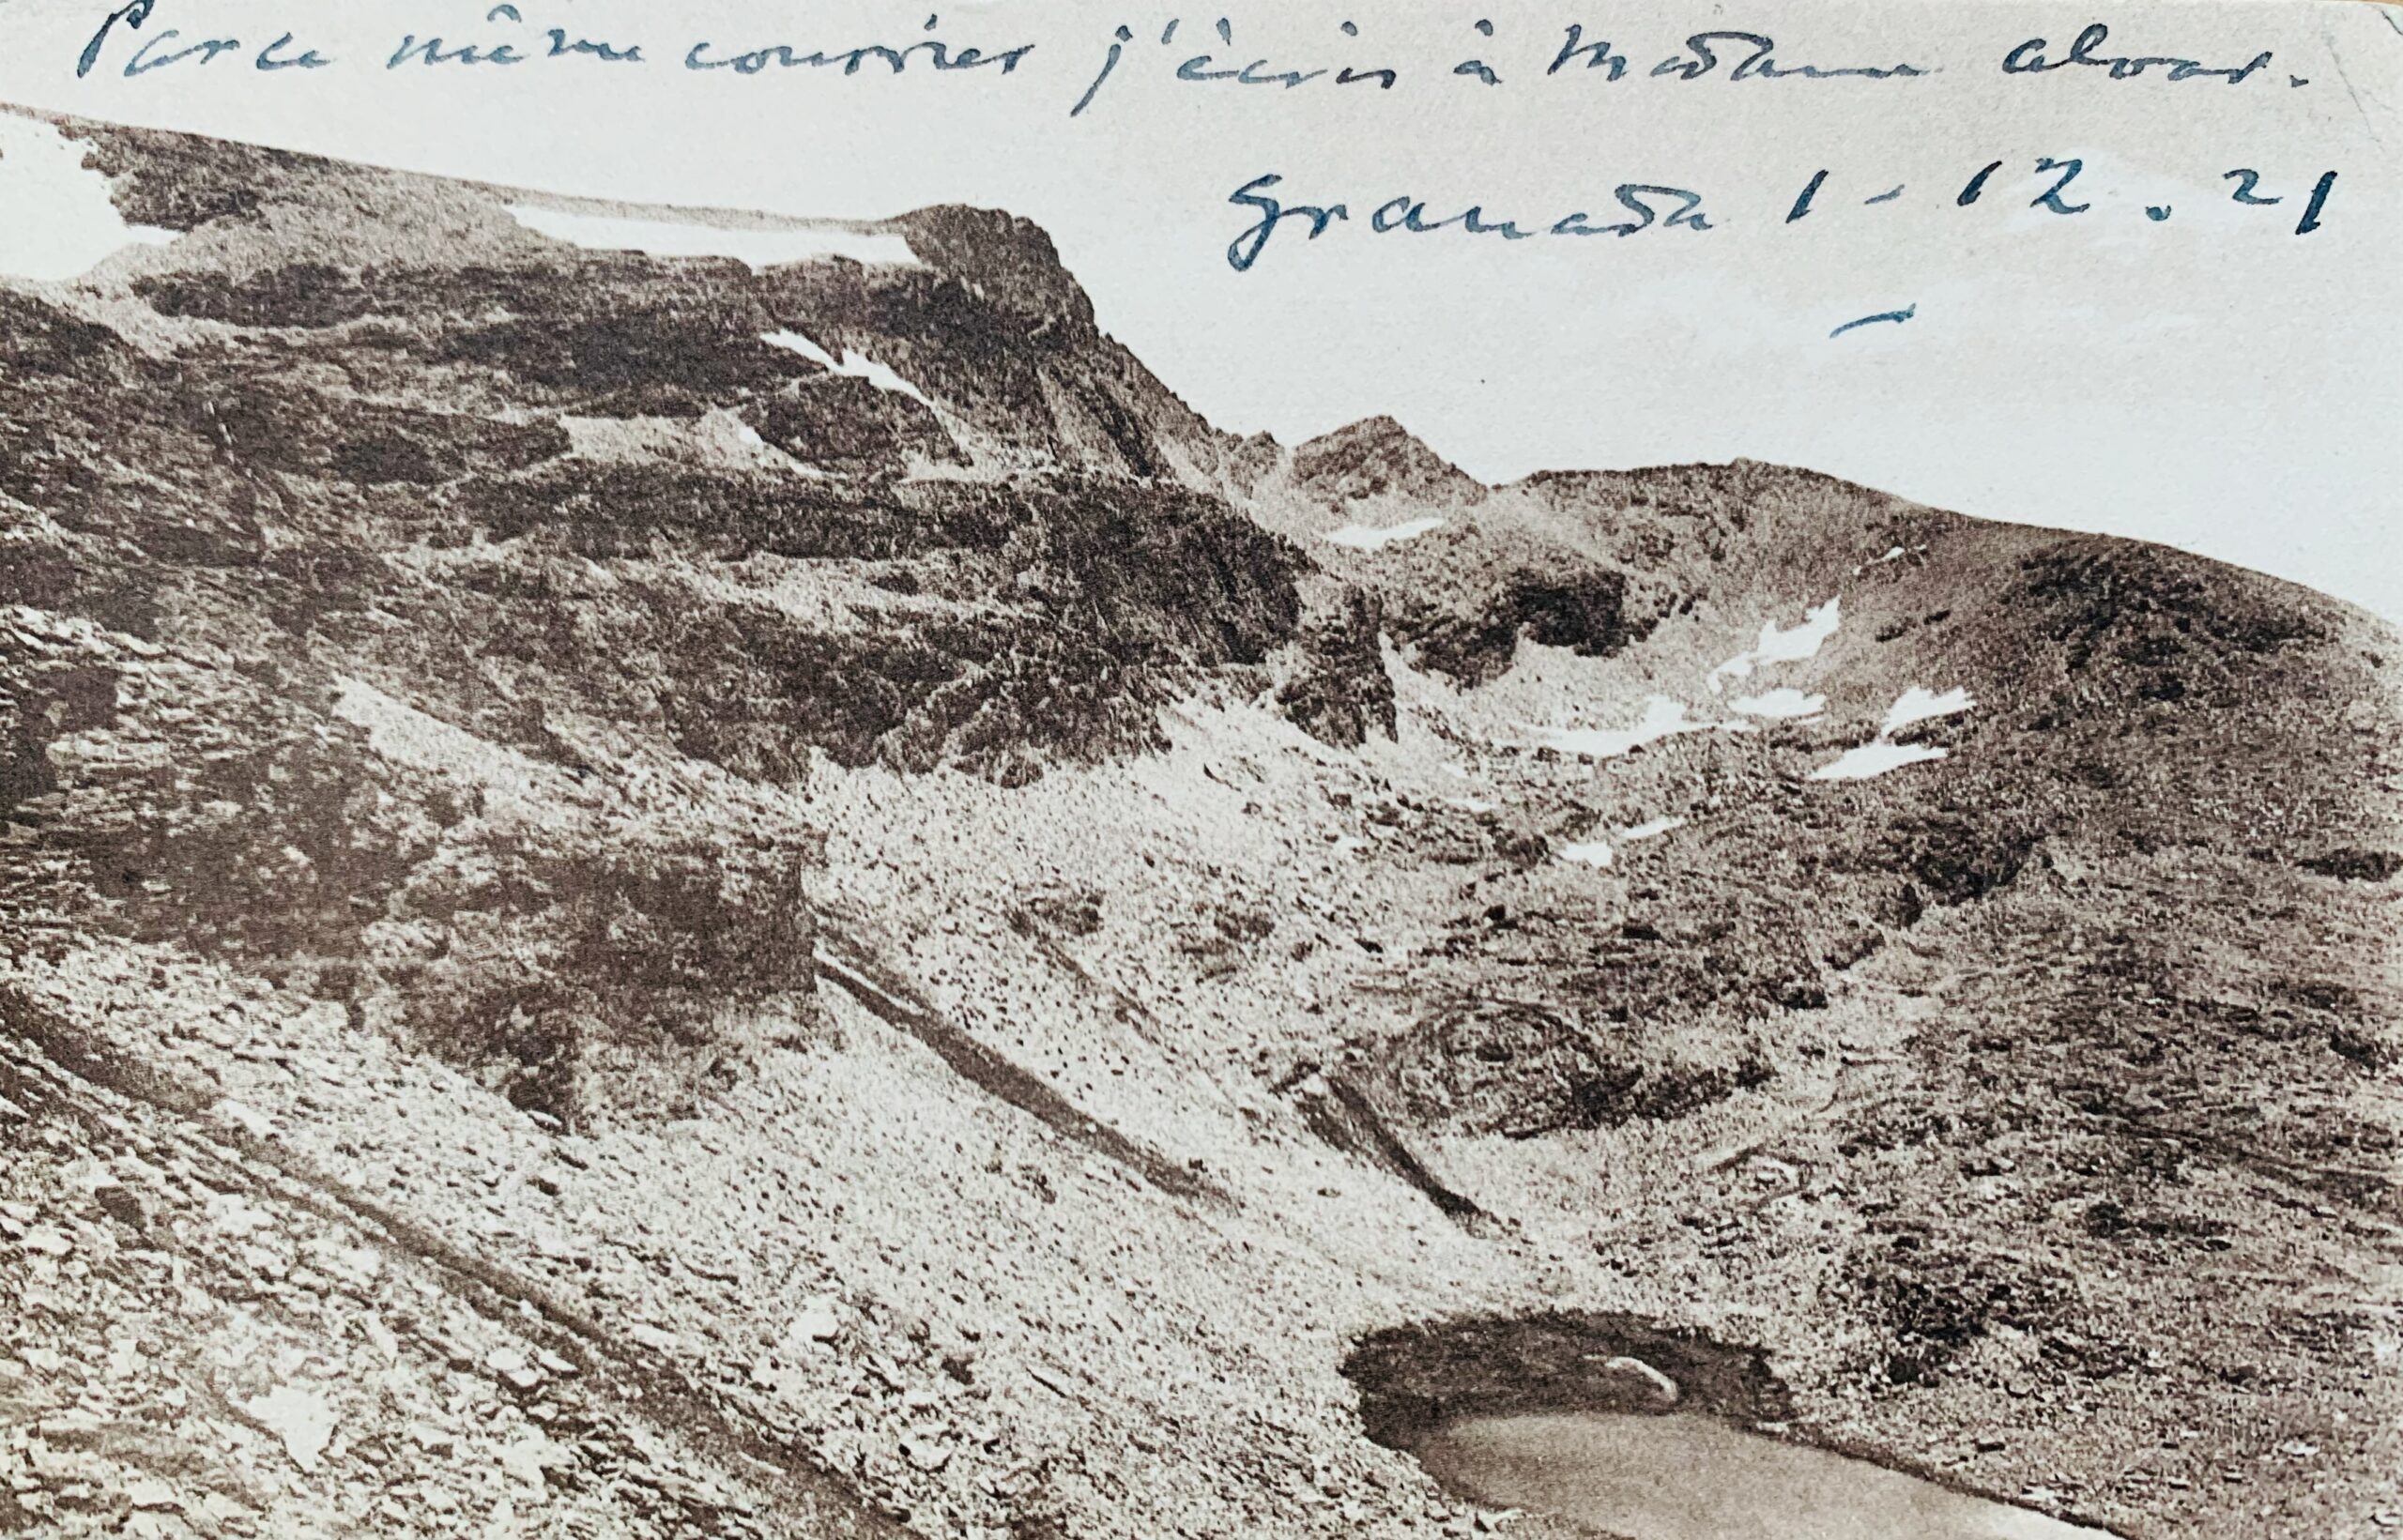 Par ce même courrier j'écris à Madame Alvar.
Granada 1-12.21